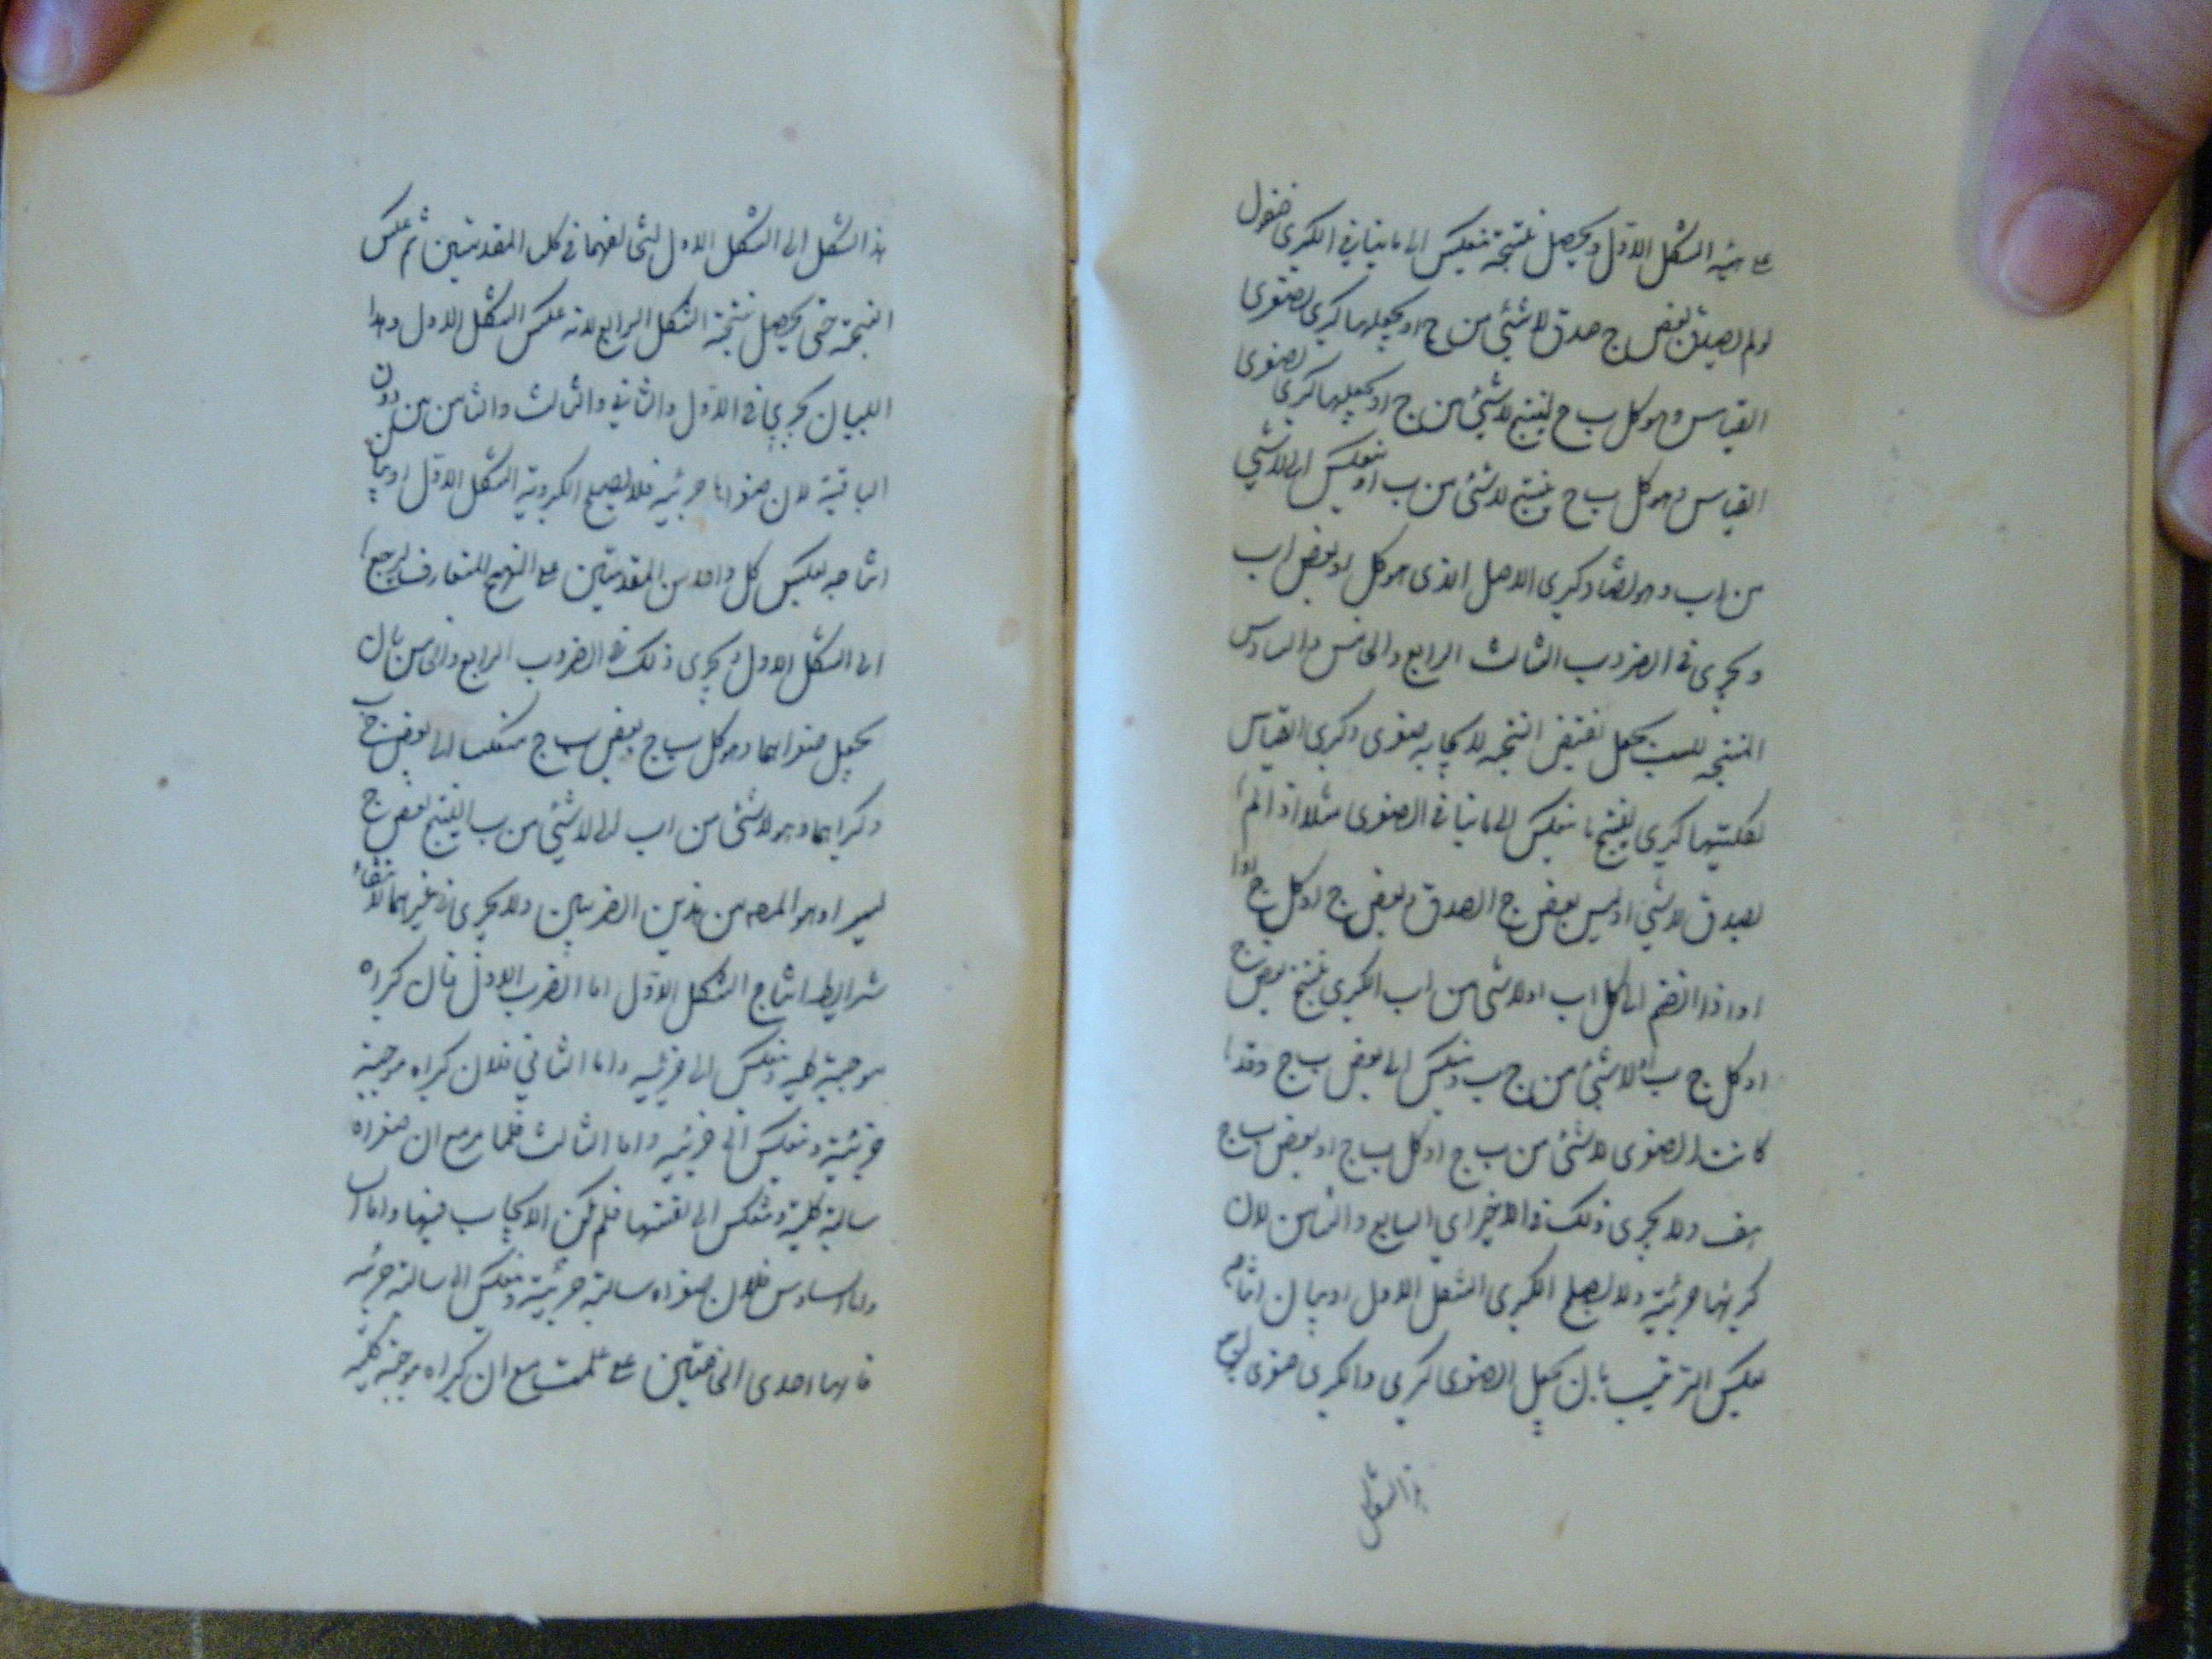 على هيئة الشكل الاول ويحصل نتيجة تنعكس الى ما ينافي الكبرى فنقول
لو لم يصدق بعض ج صدق لا شئ من ج ا ويجعلها كبرى لصغرى
القياس وهو كل ب ج لينتج لا شئ من ج او يجعلها كبرى لصغرى
القياس وهو كل ب ج ينتج لا شئ من ب ا وتنعكس الى لا شئ
من اب وهو يضاد كبرى الاصل الذى هو كل او بعض اب
ويجرى فى الضروب الثالث الرابع والخامس والسادس
النتيجه للسلب يجعل نقيض النتيجه لايجابه صغرى وكبرى القياس
لكليتها كبرى لينتج ما ينعكس الى ما ينافى الصغرى مثلا اذا لم
يصدق لا شئ او ليس بعض ج ا لصدق بعض ج او كل ج ا
او اذا انضم الى كل اب او لا شئ من اب الكبرى ينتج بعض ج
او كل ج ب او لا شئ من ج ب وينعكس الى بعض ب ج وقد
كانت الصغرى لا شئ من ب ج او كل ب ج او بعض ب ج
هف ولا يجرى ذلك فى الاخير اي السابع والثامن لان
كبريهما جزئية ولا يصلح الكبرى الشكل الاول او بيان انتاجه
بعكس الترتيب بان يجعل الصغرى كبرى والكبرى صغرى
هذا الشكل
هذا الشكل الى الشكل الاول لتخالفهما فى كل المقدمتين ثم عكس
النتيجة حتى يحصل نتيجة الشكل الرابع لانه عكس الشكل الاول وهذا
البيان يجري فى الاول والثاني والثالث والثامن من دون
الباقية لان صغراها جزئية فلا يصلح الكبروية الشكل الاول او بيان
انتاجه بعكس كل واحد من المقدمتين على النهج المتعارف ليرجع
الى الشكل الاول ويجرى ذلك فى الضروب الرابع والخامس بان
يجعل صغراهما وهو كل ب ج بعض ب ج منعكسا الى بعض ج ب
وكبراهما وهو لا شئ من اب الى لا شئ من ب ا لينتج بعض ج
ليس ا وهو المدعى من هذين الضربين ولا يجرى فى غيرهما لانتفاء
شرايط انتاج الشكل الاول اما الضرب الاول فلان كبراه
موجبة كلية وينعكس الى جزئيه واما الثاني فلان كبراه موجبة
جزئية وينعكس الى جزئيه واما الثالث فلما مر مع ان صغراه
سالبة كلية وتنعكس الى نفسها فلم يكن الايجاب فيها واما
واما السادس فلان صغراه سالبة جزئية وتنعكس الى سالبة جزئيه
فانها احدى الخاصتين على علمت مع ان كبراه موجبة كلية